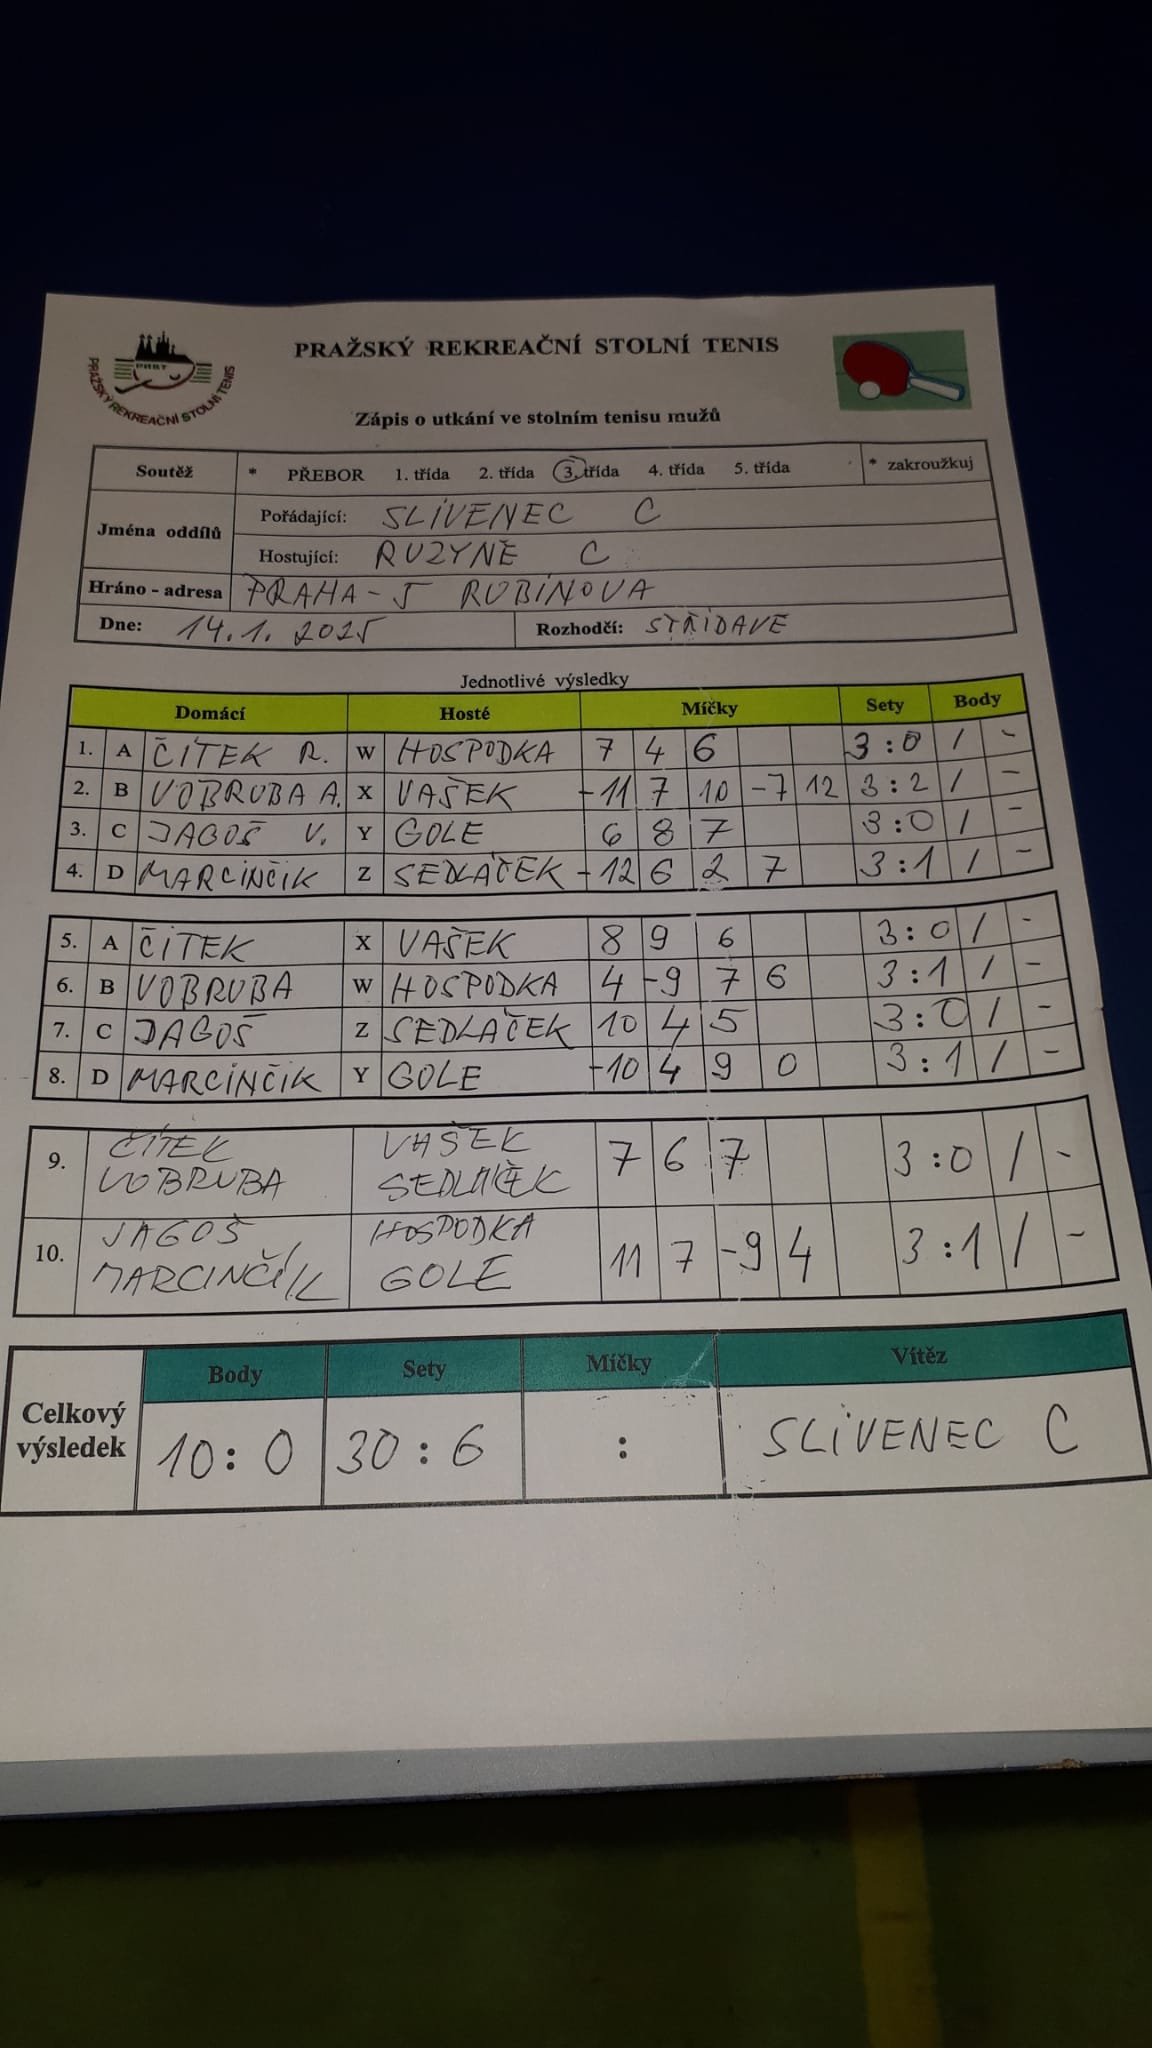 PRAŽSKÝ REKREAČNÍ STOLNÍ TENIS
PRST
PRAŽSKÝ REKREAČNÍ STOLNÍ TENIS
Zápis o utkání ve stolním tenisu mužů
Soutěž * PŘEBOR 1. třída 2. třída 3. třída 4. třída 5. třída * zakroužkuj
Jména oddílů
Pořádající: SLIVENEC C
Hostující: RUZYNĚ C
Hráno - adresa PRAHA-5 RUBÍNOVA
Dne: 14.1. 2025 Rozhodčí: STŘÍDAVĚ
Jednotlivé výsledky
Domácí Hosté Míčky Sety Body
1. A ČÍTEK R. W HOSPODKA 7 4 6 3:0 / -
2. B VOBRUBA A. X VAŠEK -11 7 10 -7 12 3:2 / -
3. C JAGOŠ V. Y GOLE 6 8 7 3:0 / -
4. D MARCINČIK Z SEDLÁČEK -12 6 2 7 3:1 / -
5. A ČÍTEK X VAŠEK 8 9 6 3:0 / -
6. B VOBRUBA W HOSPODKA 4 -9 7 6 3:1 / -
7. C JAGOŠ Z SEDLÁČEK 10 4 5 3:0 / -
8. D MARCINČIK Y GOLE -10 4 9 0 3:1 / -
9. ČÍTEK VOBRUBA VAŠEK SEDLÁČEK 7 6 7 3:0 / -
10. JAGOŠ MARCINČIK HOSPODKA GOLE 11 7 -9 4 3:1 / -
Body Sety Míčky Vítěz
Celkový výsledek 10:0 30:6 : SLIVENEC C